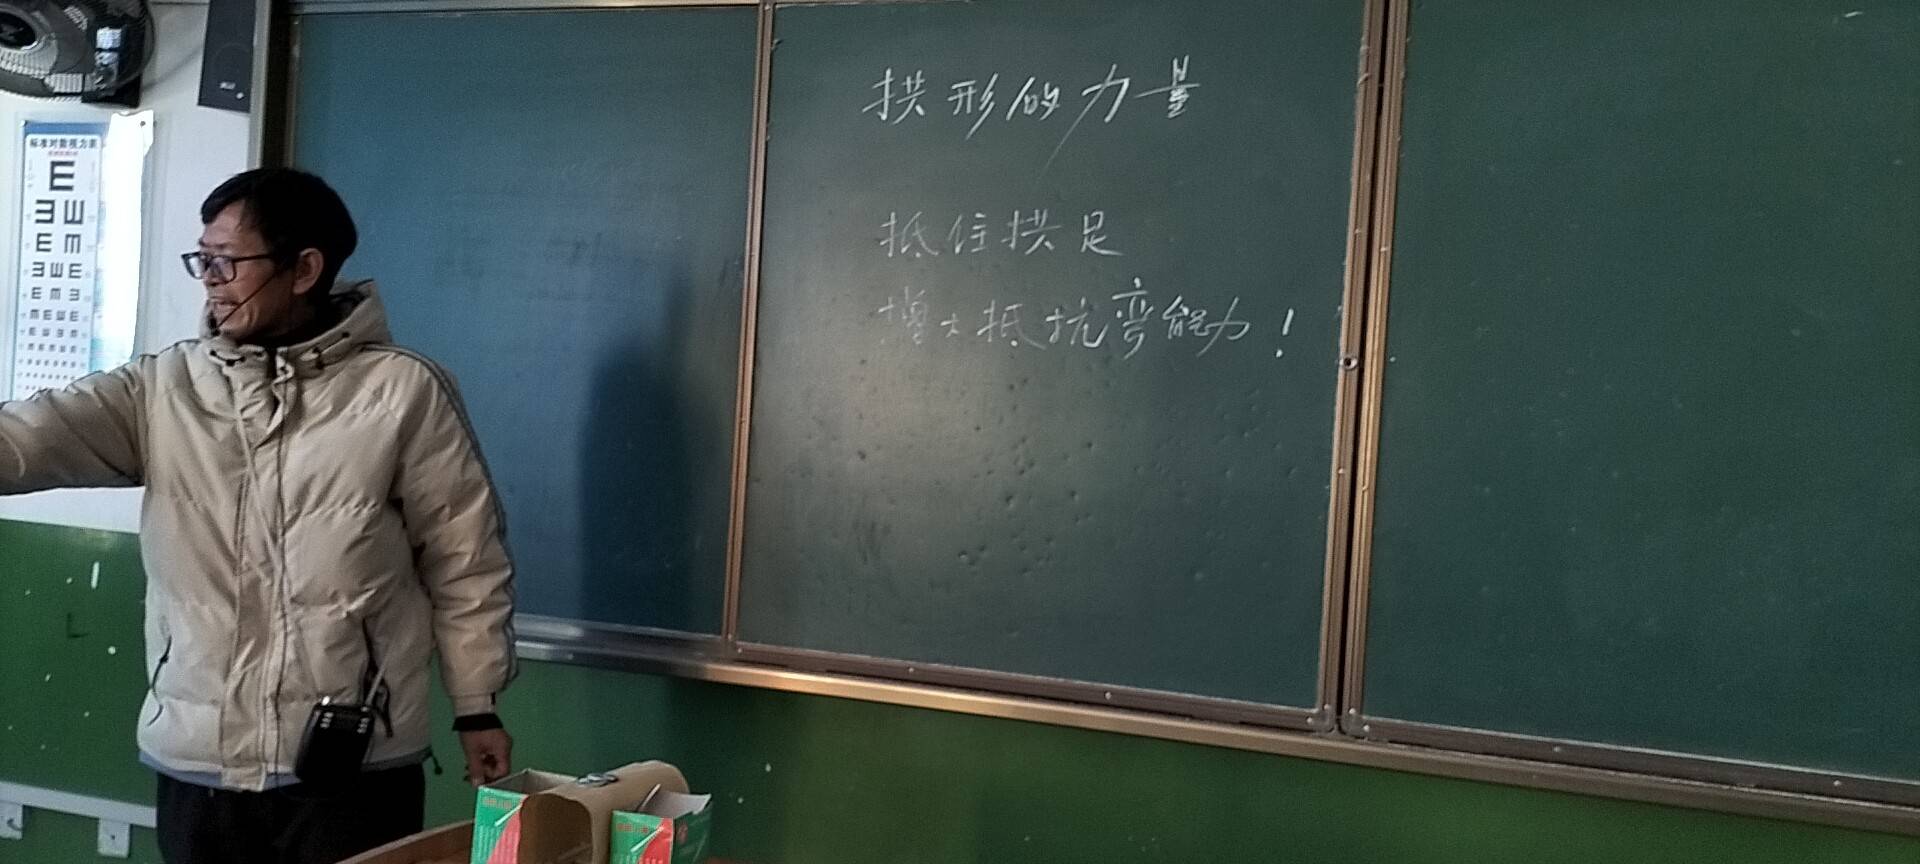 标准对数视力表
拱形的力量
抵住拱足
增大抵抗弯能力!